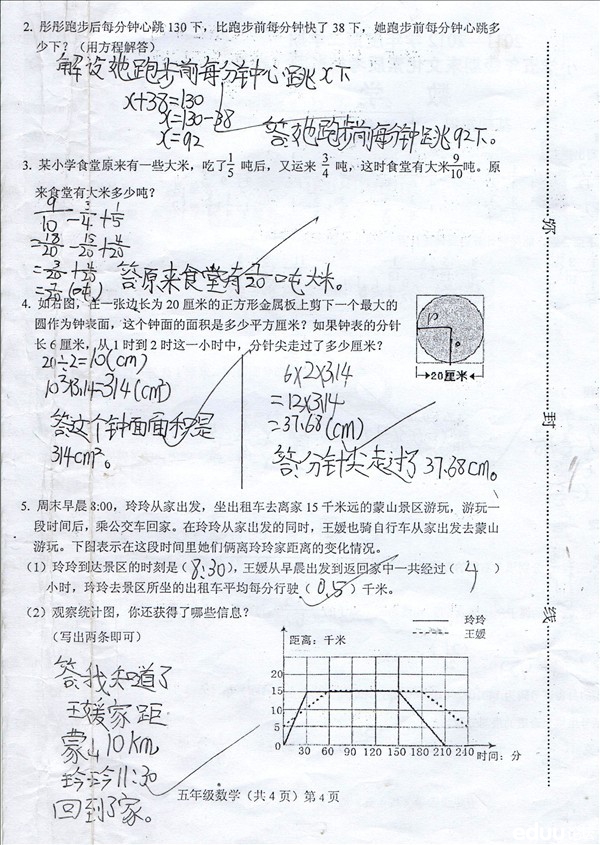 2. 彤彤跑步后每分钟心跳 130 下，比跑步前每分钟快了 38 下，她跑步前每分钟心跳多
少下？（用方程解答）
解设她跑步前每分钟心跳x下
x+38=130
x=130-38
x=92
答她跑步前每分钟跳92下。
3. 某小学食堂原来有一些大米，吃了1/5 吨后，又运来 3/4 吨，这时食堂有大米9/10吨。原
来食堂有大米多少吨？
9/10-3/4+1/5
=18/20-15/20+4/20
=3/20+4/20
=7/20(吨)
答原来食堂有7/20吨大米。
4. 如右图，在一张边长为 20 厘米的正方形金属板上剪下一个最大的
圆作为钟表面，这个钟面的面积是多少平方厘米？如果钟表的分针
长 6 厘米，从 1 时到 2 时这一小时中，分针尖走过了多少厘米？
←20厘米→
20÷2=10(cm)
10²×3.14=314(cm²)
答这个钟面面积是
314cm²。
6×2×3.14
=12×3.14
=37.68(cm)
答分针尖走过了37.68cm。
5. 周末早晨 8:00，玲玲从家出发，坐出租车去离家 15 千米远的蒙山景区游玩，游玩一
段时间后，乘公交车回家。在玲玲从家出发的同时，王媛也骑自行车从家出发去蒙山
游玩。下图表示在这段时间里她们俩离玲玲家距离的变化情况。
（1）玲玲到达景区的时刻是（8:30），王媛从早晨出发到返回家中一共经过（ 4 ）
小时，玲玲去景区所坐的出租车平均每分行驶（0.5）千米。
（2）观察统计图，你还获得了哪些信息？
（写出两条即可）
答我知道了
王媛家距
蒙山10km
玲玲11:30
回到了家。
玲玲
王媛
距离：千米
20
15
10
5
0
30 60 90 120 150 180 210 240
时间：分
五年级数学（共 4 页）第 4 页
弥
封
线